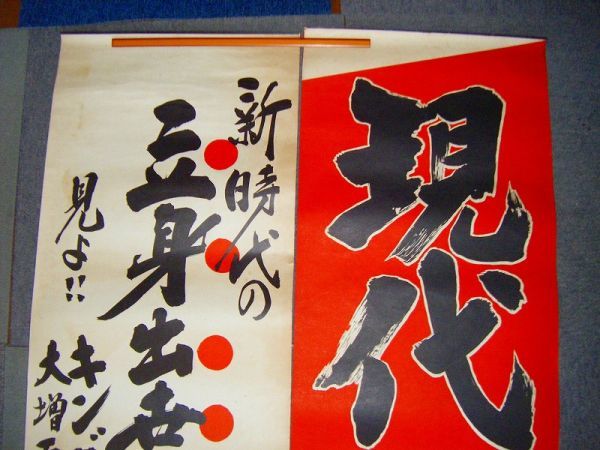 現代
新時代の
立身出世
見よ!!
キン
大増